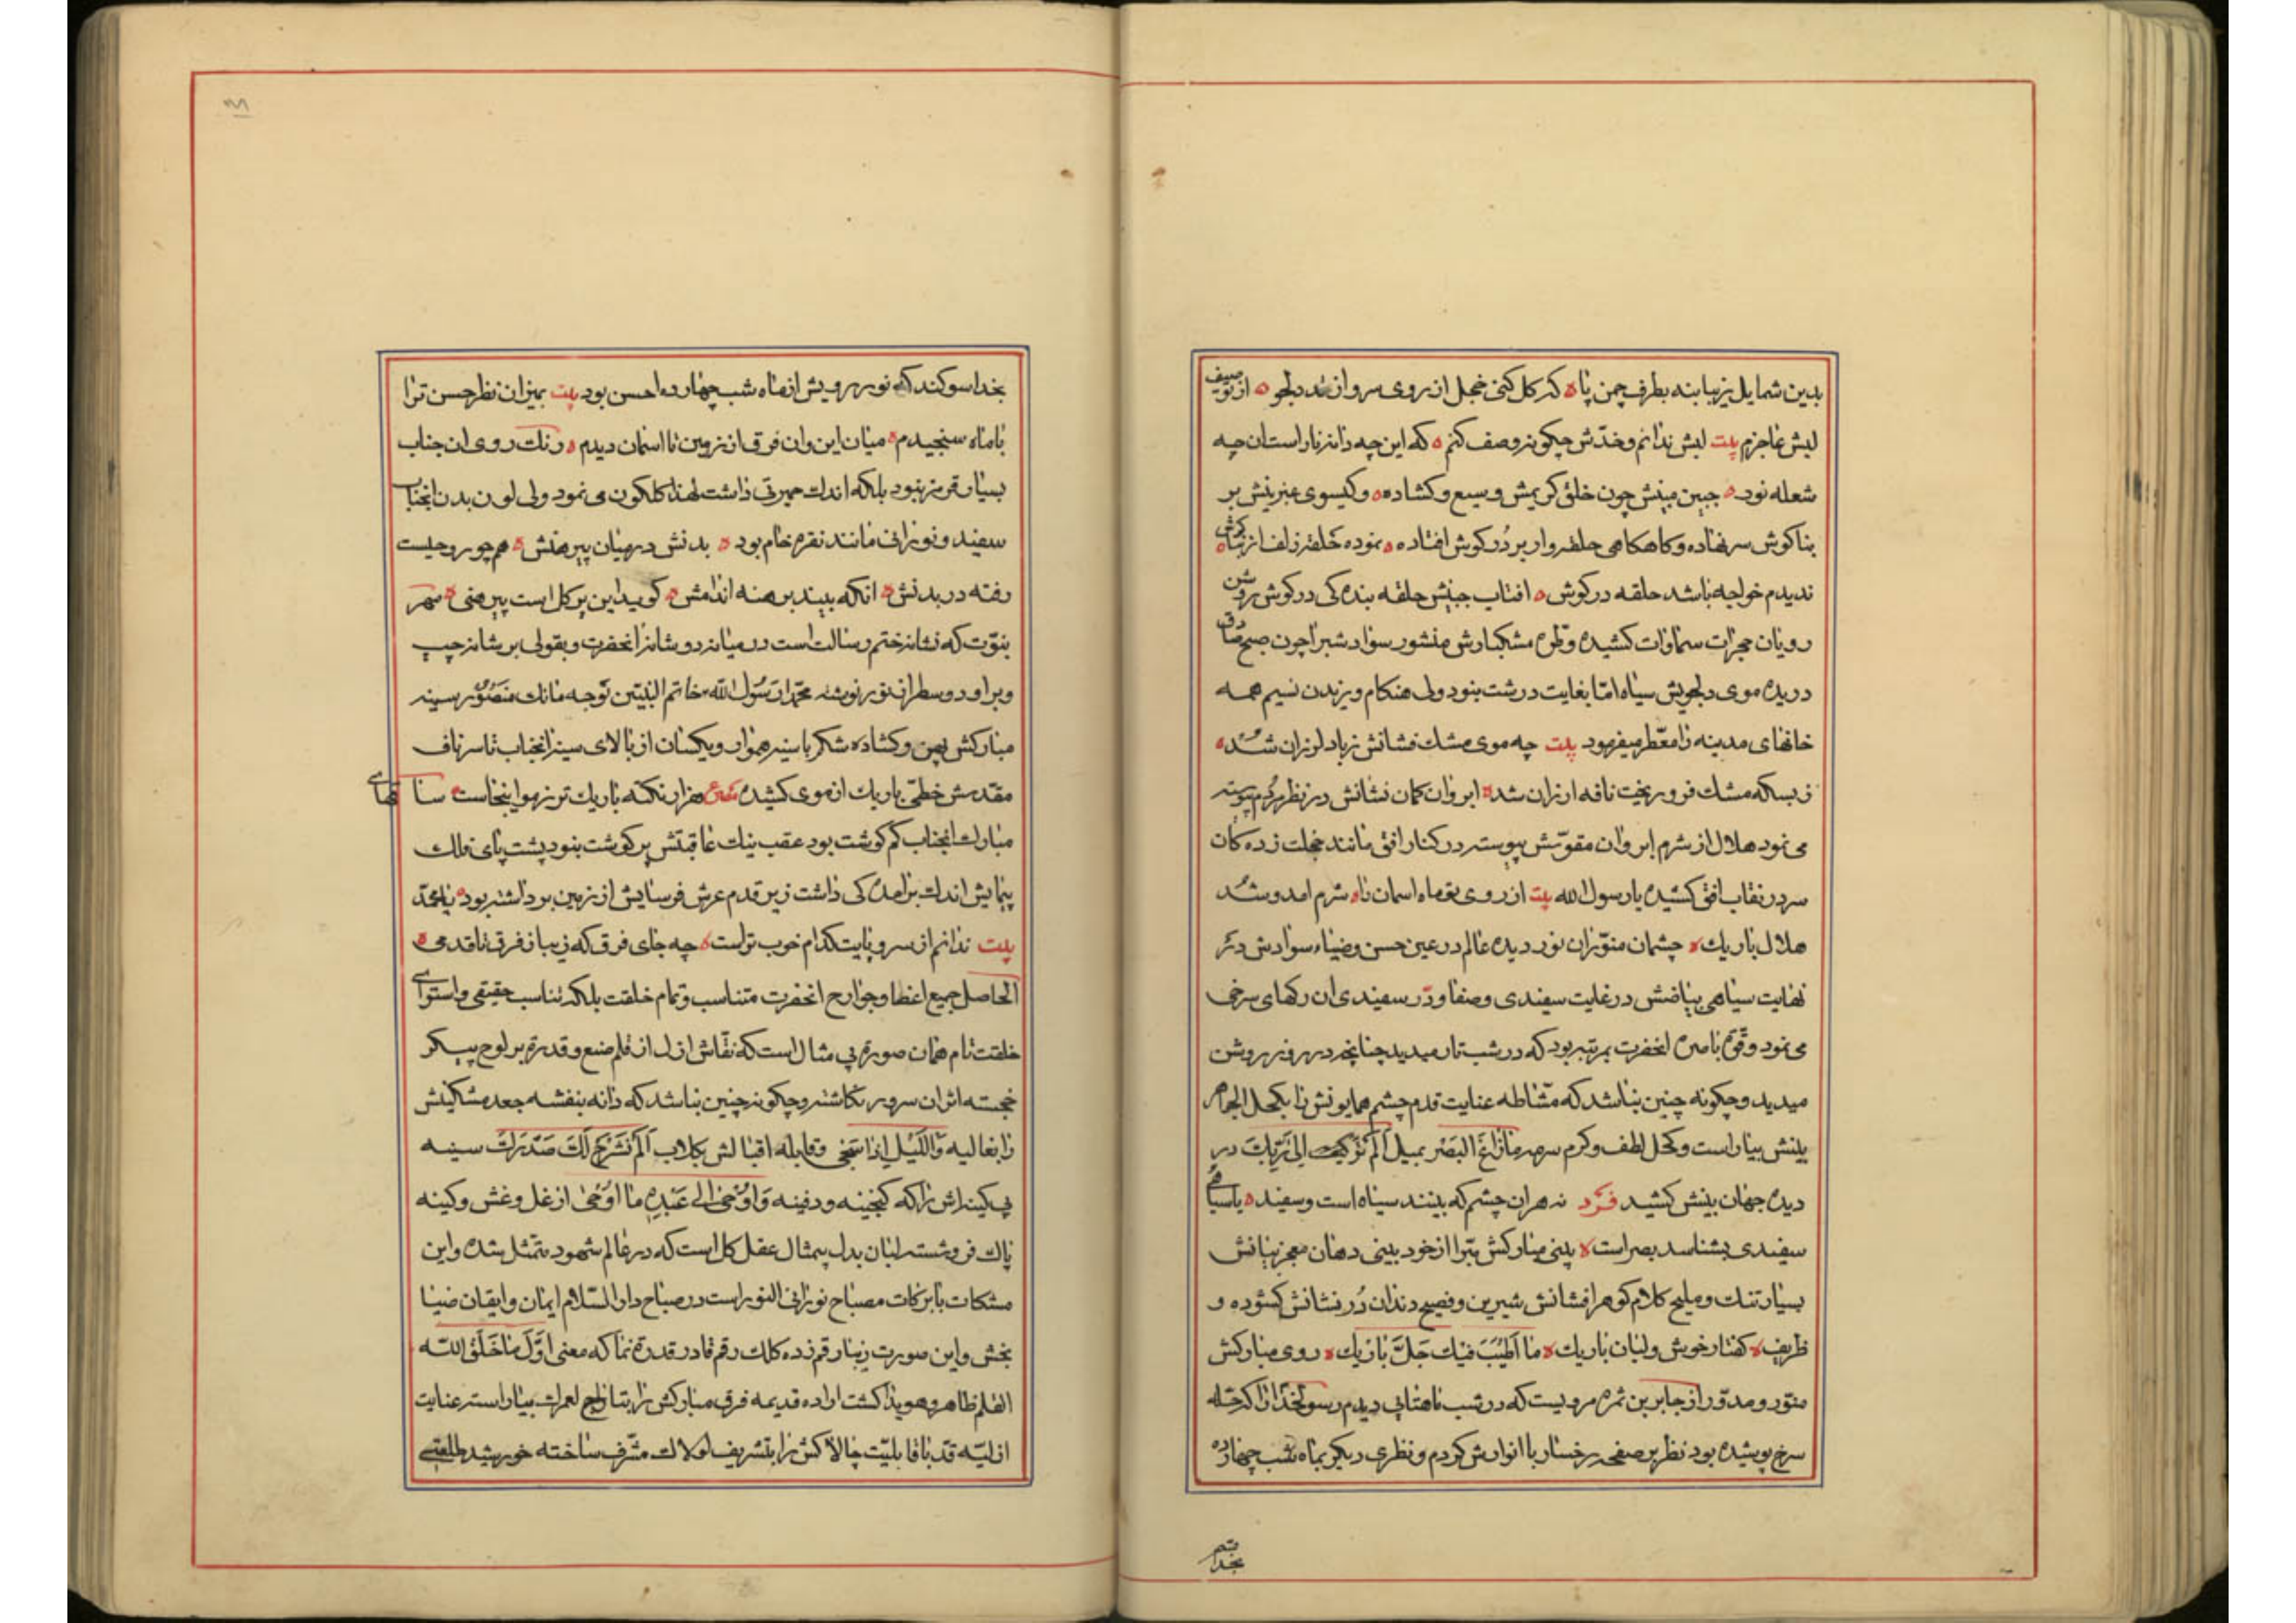 بدین شمایل زیبا بنه بطرف چمن پا ه که کل کنی خجل از روی سرو از قد دلجو ه از توصیف
لبش عاجزم بیت لبش ندانم و خدّش چکونه وصف کنم ه که این چه دانه نار است ان چه
شعله نور ه جبین مبینش چون خلق کریمش وسیع و کشاده ه و کیسوی عنبرینش بر
بناکوش سر نهاده و کاه کاهی حلقه وار بر دُر کوش افتاده ه نموده حلقه زلف از بناکوش ه
ندیدم خواجه باشد حلقه در کوش ه افتاب جبینش حلقه بنده کی در کوش روشن
رویان حجرات سماوات کشیده و طره مشکبارش منشور سواد شبرا چون صبح صادق
دریده موی دلجویش سیاه امّا بغایت درشت بنود ولی هنکام وزیدن نسیم همه
خانهای مدینه را معّطر میفرمود بیت چه موی مشك فشانش زباد لرزان شد ه
ز بسکه مشك فرو ریخت نافه ارزان شد ه ابروان کمان نشانش در نظر مردم پیوسته
می نمود هلال از شرم ابروان مقوّسش پیوسته در کنار افق مانند خجلت زده کان
سر در نقاب افق کشیده یا رسول الله بیت از روی تو ماه اسمان را ه شرم امد و شد
هلال باریك ه چشمان منوّر ان نور دیده عالم در عین حسن و ضیاء سوادش در
نهایت سیاهی بیاضش در غایت سفیدی و صفا و در سفیدی ان رکهای سرخی
می نمود و قوّه باصره انحضرت بمرتبه بود که در شب تار میدید چنانچه در روز روشن
میدید و چکونه چنین بناشد که مشّاطه عنایت قدم چشم همایونش را بکحل الجواهر
بینش بیاراست و کحل لطف و کرم سرمه مَا زَاغَ البَصَر بمیل اَلَمْ تَرَ کَیْفَ اِلی رَبِّكَ در
دیده جهان بینش کشید فرد نه هران چشم که بینند سیاه است و سفید ه یا سیاهی
سفیدی بشناسد بصر است ه بینی مبارکش مبّرا از خود بینی دهان معجز بیانش
بسیار تنك و ملیح کلام کوهر افشانش شیرین و فصیح دندان دُر نشانش کشوده و
ظریف ه کفتار خوش و لبان باریك ه ما اَطْیَبَ فیك جَلَّ باریك ه روی مبارکش
منوّر و مدوّر از جابر بن ثمره مرویست که در شب ماهتابی دیدم رسولخدا را که حلّه
سرخ پوشیده بود نظر بر صفحه رخسار با انوارش کردم و نظری دیکر بماه شب چهارده
قسم
بخدا
بخدا سوکند که نور رویش از ماه شب چهارده احسن بود بیت بمیزان نظر حسن ترا
با ماه سنجیدم ه میان این وان فرق از زمین تا اسمان دیدم ه رنك روی ان جناب
بسیار قرمز بنود بلکه اندك حمرتی داشت لهذا کلکون می نمود ولی لون بدن انجناب
سفید و نورانی مانند نقره خام بود ه بدنش در میان پیرهنش ه همچو روحیست
رفته در بدنش ه انکه بیند برهنه اندامش ه کوید این پر کل است پیرهنی ه مهر
بنوّت که نشانه ختم رسالت است در میانه دو شانه انحضرت و بقولی بر شانه چپ
و بر او دو سطر از نور نوشته محمّد رَسُول الله خاتم النبیّین تَوجه مانك مَنصُوُر سینه
مبارکش پهن و کشاده شکم با سینه هموار و یکسان از بالای سینه انجناب تا سر ناف
مقدسش خطّی باریك از موی کشیده شعر هزار نکته باریك تر ز مو اینجاست ه ساقهای
مبارك انجناب کم کوشت بود عقب نیك عاقبتش پر کوشت بنود پشت پای فلك
پیمایش اندك برامده کی داشت زیر قدم عرش فرسایش از زمین برداشته بود ه یا محمّد
بیت ندانم از سر و پایت کدام خوب تر است ه چه جای فرق که زیبا ز فرق تا قدمی ه
الحاصل جمیع اعضا و جوارح انحضرت متناسب و تمام خلقت بلکه تناسب حقیقی و استوای
خلقت تام همان صورة بی مثال است که نقّاش ازل از قلم صنع و قدرة بر لوح پیکر
خجسته اثر ان سرور نکاشته و چکونه چنین بناشد که دانه بنفشه جعد مشکینش
را بغالیه وَاللَّیْلِ اِذَا سَجی و قابله اقبالش بکلاب اَلَمْ نَشْرَحْ لَكَ صَدْرَكَ سینه
بی کینه اش را که کنجینه و دفینه وَ اَوْحی الی عَبْدِهِ مَا اَوْحی از غل و غش و کینه
پاك فرو شسته ابان بدل بیمثال عقل کل است که در عالم شهود متمثّل شده و این
مشکات با برکات مصباح نورانی النور است در صباح دار السّلام ایمان و ایقان ضیا
بخش و این صورت زیبا رقم زده کلك رقم قادر قدرة نما که معنی اَوَّلُ مَا خَلَقَ اللّٰه
القلم ظاهر و هویدا کشت اراده قدیمه فرق مبارکش را بتاج لعمرك بیاراسته عنایت
ازلیّه قدّ باقابلیّت چالاکش را بتشریف لولاك مشرّف ساخته خورشید طلعتی